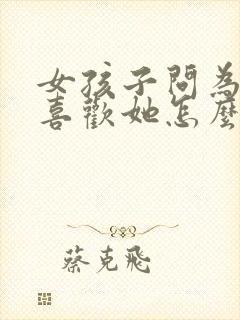 女孩子問為
喜歡她怎麼
蔡克飛